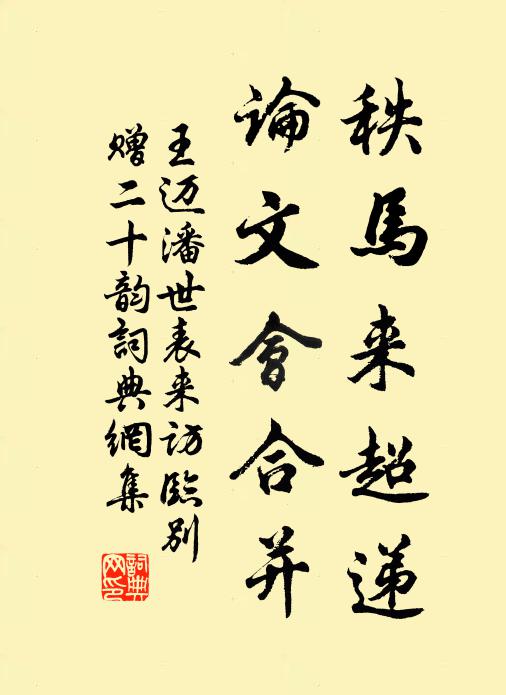 秩馬来超递
論文會合并
王迈潘世表来访臨别
赠二十韵詞典網集
詞典网印